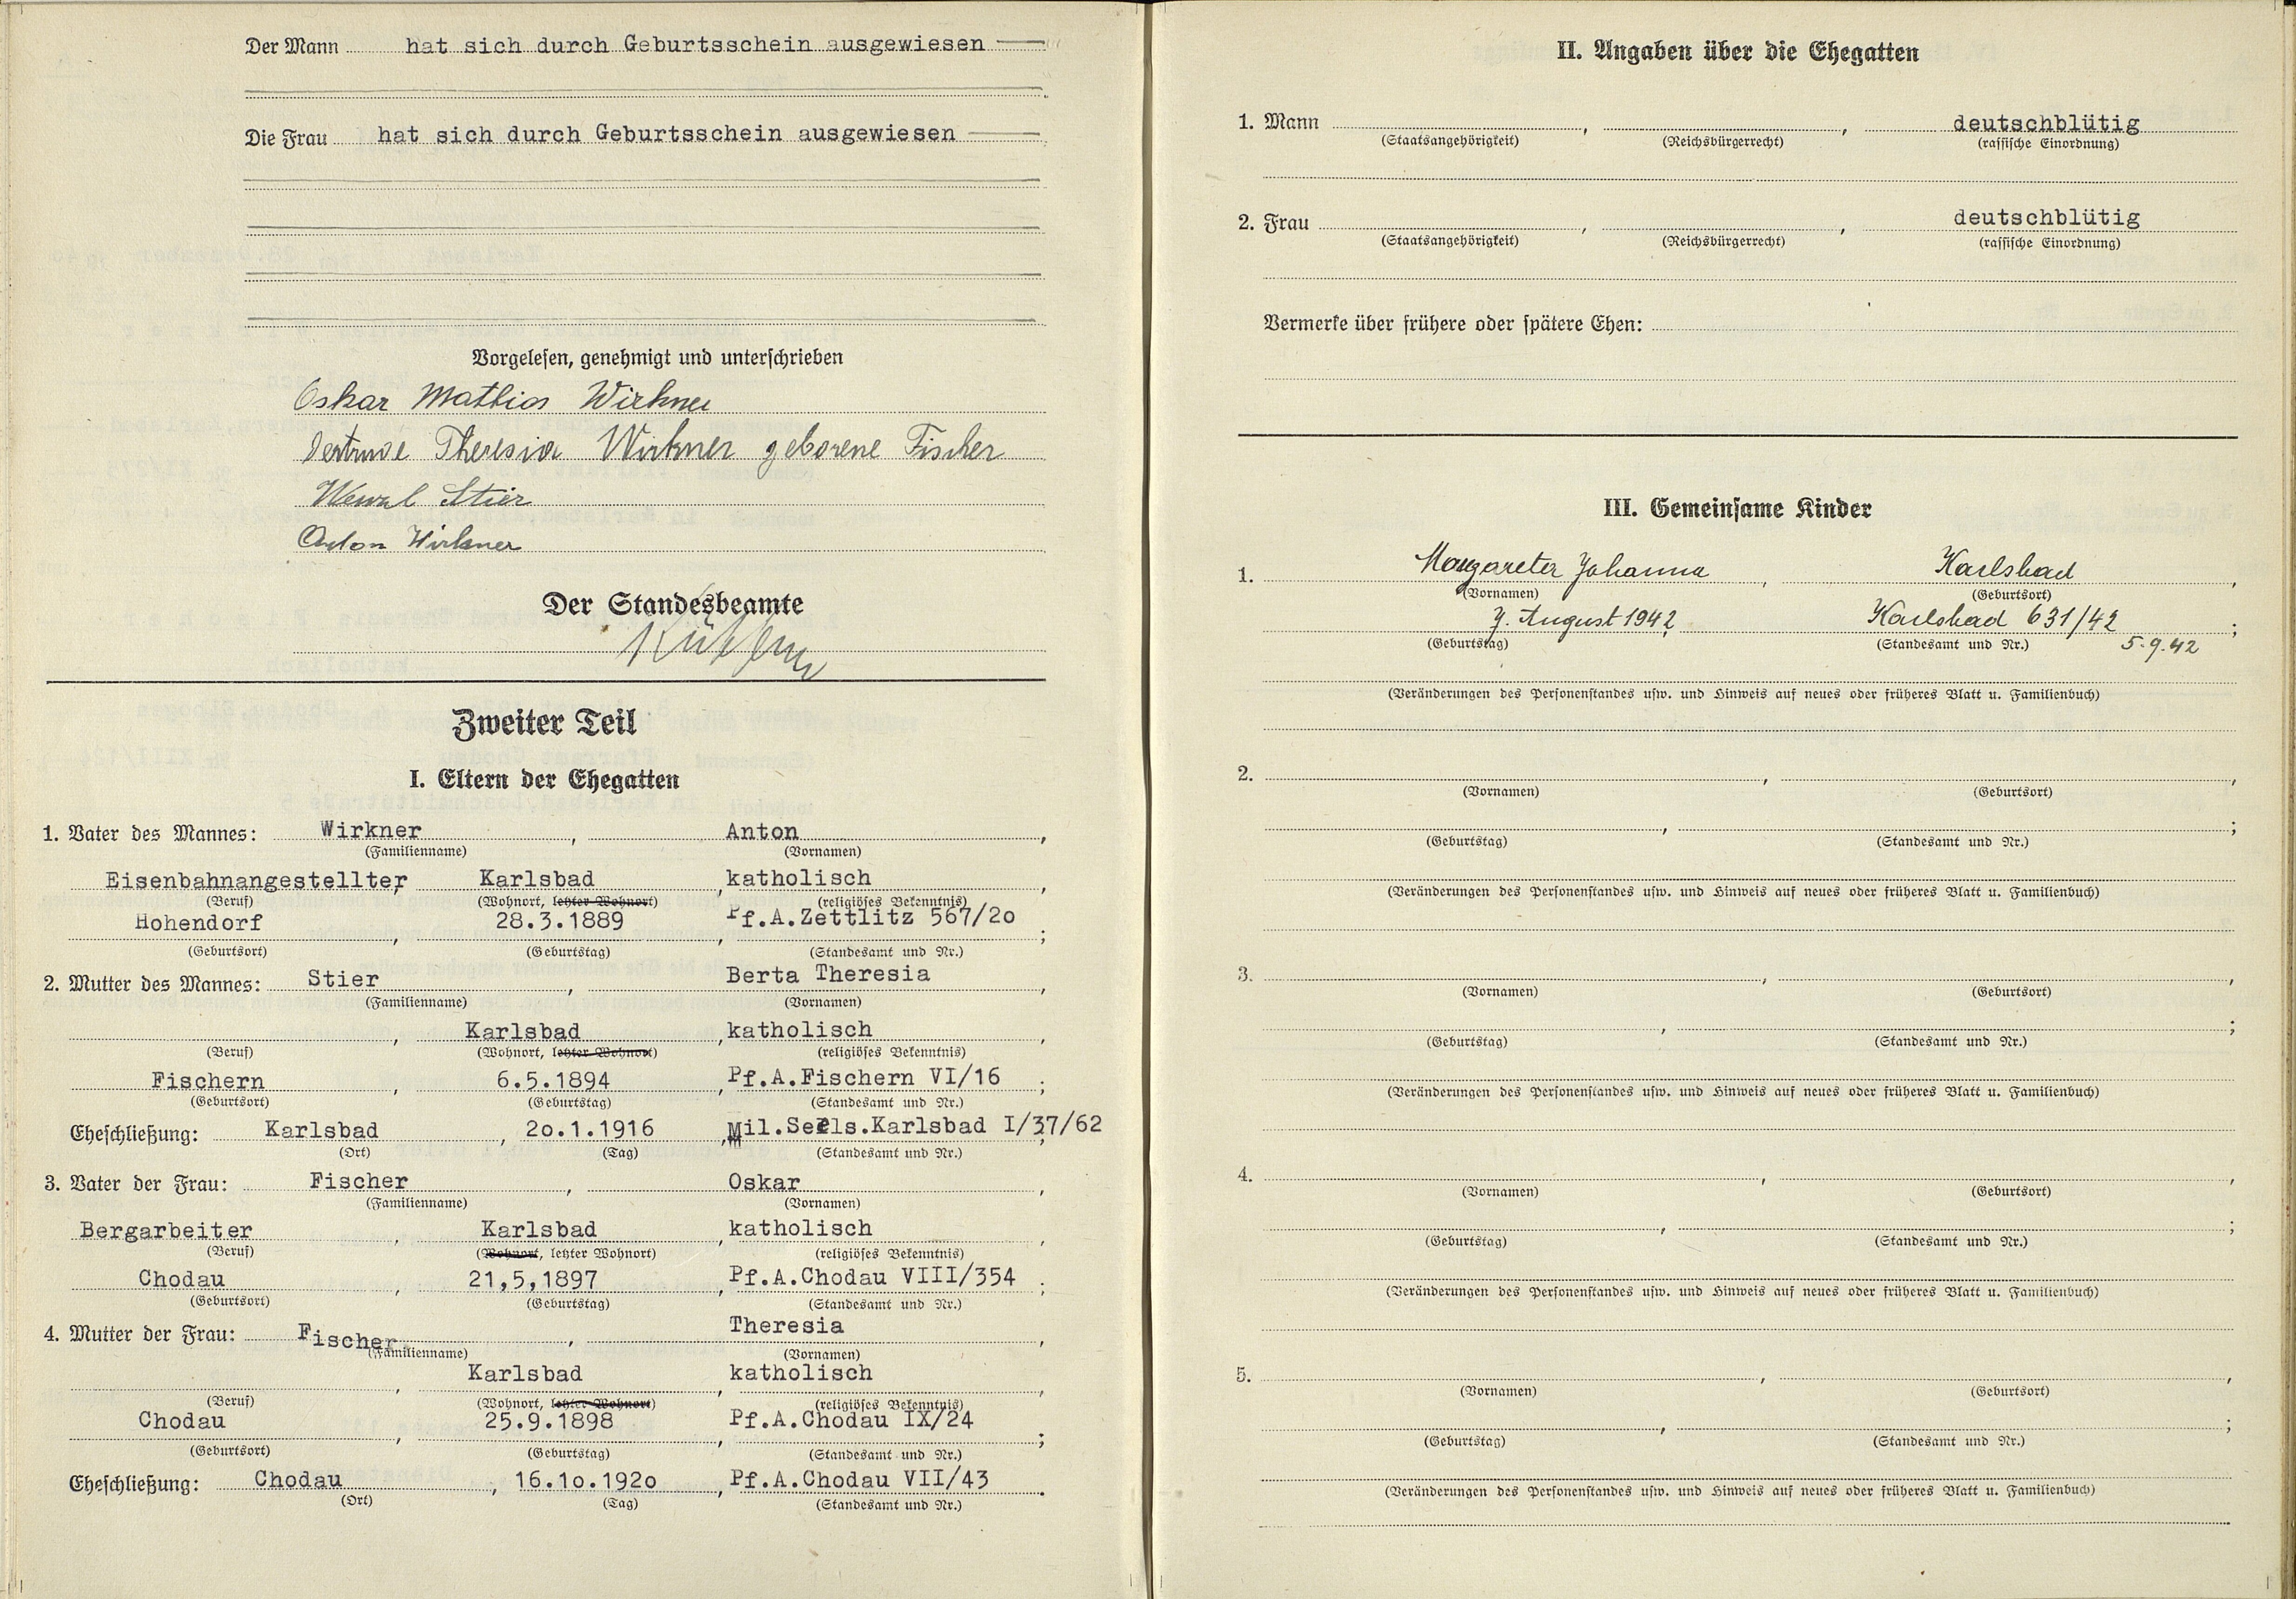 Der Mann hat sich durch Geburtsschein ausgewiesen
Die Frau hat sich durch Geburtsschein ausgewiesen
Vorgelesen, genehmigt und unterschrieben
Oskar Mathias Wirkner
Gertrude Theresia Wirkner geborene Fischer
Wenzl Stier
Anton Wirkner
Der Standesbeamte
Zweiter Teil
I. Eltern der Ehegatten
1. Vater des Mannes: Wirkner, Anton,
(Familienname) (Vornamen)
Eisenbahnangestellter, Karlsbad, katholisch,
(Beruf) (Wohnort, letzter Wohnort) (religiöses Bekenntnis)
Hohendorf, 28.3.1889, Pf.A.Zettlitz 567/2o;
(Geburtsort) (Geburtstag) (Standesamt und Nr.)
2. Mutter des Mannes: Stier, Berta Theresia,
(Familienname) (Vornamen)
, Karlsbad, katholisch,
(Beruf) (Wohnort, letzter Wohnort) (religiöses Bekenntnis)
Fischern, 6.5.1894, Pf.A.Fischern VI/16;
(Geburtsort) (Geburtstag) (Standesamt und Nr.)
Eheschließung: Karlsbad, 2o.1.1916, Mil.Seels.Karlsbad I/37/62;
(Ort) (Tag) (Standesamt und Nr.)
3. Vater der Frau: Fischer, Oskar,
(Familienname) (Vornamen)
Bergarbeiter, Karlsbad, katholisch,
(Beruf) (Wohnort, letzter Wohnort) (religiöses Bekenntnis)
Chodau, 21,5,1897, Pf.A.Chodau VIII/354;
(Geburtsort) (Geburtstag) (Standesamt und Nr.)
4. Mutter der Frau: Fischer, Theresia,
(Familienname) (Vornamen)
, Karlsbad, katholisch,
(Beruf) (Wohnort, letzter Wohnort) (religiöses Bekenntnis)
Chodau, 25.9.1898, Pf.A.Chodau IX/24;
(Geburtsort) (Geburtstag) (Standesamt und Nr.)
Eheschließung: Chodau, 16.1o.192o, Pf.A.Chodau VII/43.
(Ort) (Tag) (Standesamt und Nr.)
II. Angaben über die Ehegatten
1. Mann , , deutschblütig
(Staatsangehörigkeit) (Reichsbürgerrecht) (rassische Einordnung)
2. Frau , , deutschblütig
(Staatsangehörigkeit) (Reichsbürgerrecht) (rassische Einordnung)
Vermerke über frühere oder spätere Ehen:
III. Gemeinsame Kinder
1. Margareta Johanna, Karlsbad,
(Vornamen) (Geburtsort)
7. August 1942, Karlsbad 631/42;
(Geburtstag) (Standesamt und Nr.) 5.9.42
(Veränderungen des Personenstandes usw. und Hinweis auf neues oder früheres Blatt u. Familienbuch)
2. , ,
(Vornamen) (Geburtsort)
, ;
(Geburtstag) (Standesamt und Nr.)
(Veränderungen des Personenstandes usw. und Hinweis auf neues oder früheres Blatt u. Familienbuch)
3. , ,
(Vornamen) (Geburtsort)
, ;
(Geburtstag) (Standesamt und Nr.)
(Veränderungen des Personenstandes usw. und Hinweis auf neues oder früheres Blatt u. Familienbuch)
4. , ,
(Vornamen) (Geburtsort)
, ;
(Geburtstag) (Standesamt und Nr.)
(Veränderungen des Personenstandes usw. und Hinweis auf neues oder früheres Blatt u. Familienbuch)
5. , ,
(Vornamen) (Geburtsort)
, ;
(Geburtstag) (Standesamt und Nr.)
(Veränderungen des Personenstandes usw. und Hinweis auf neues oder früheres Blatt u. Familienbuch)